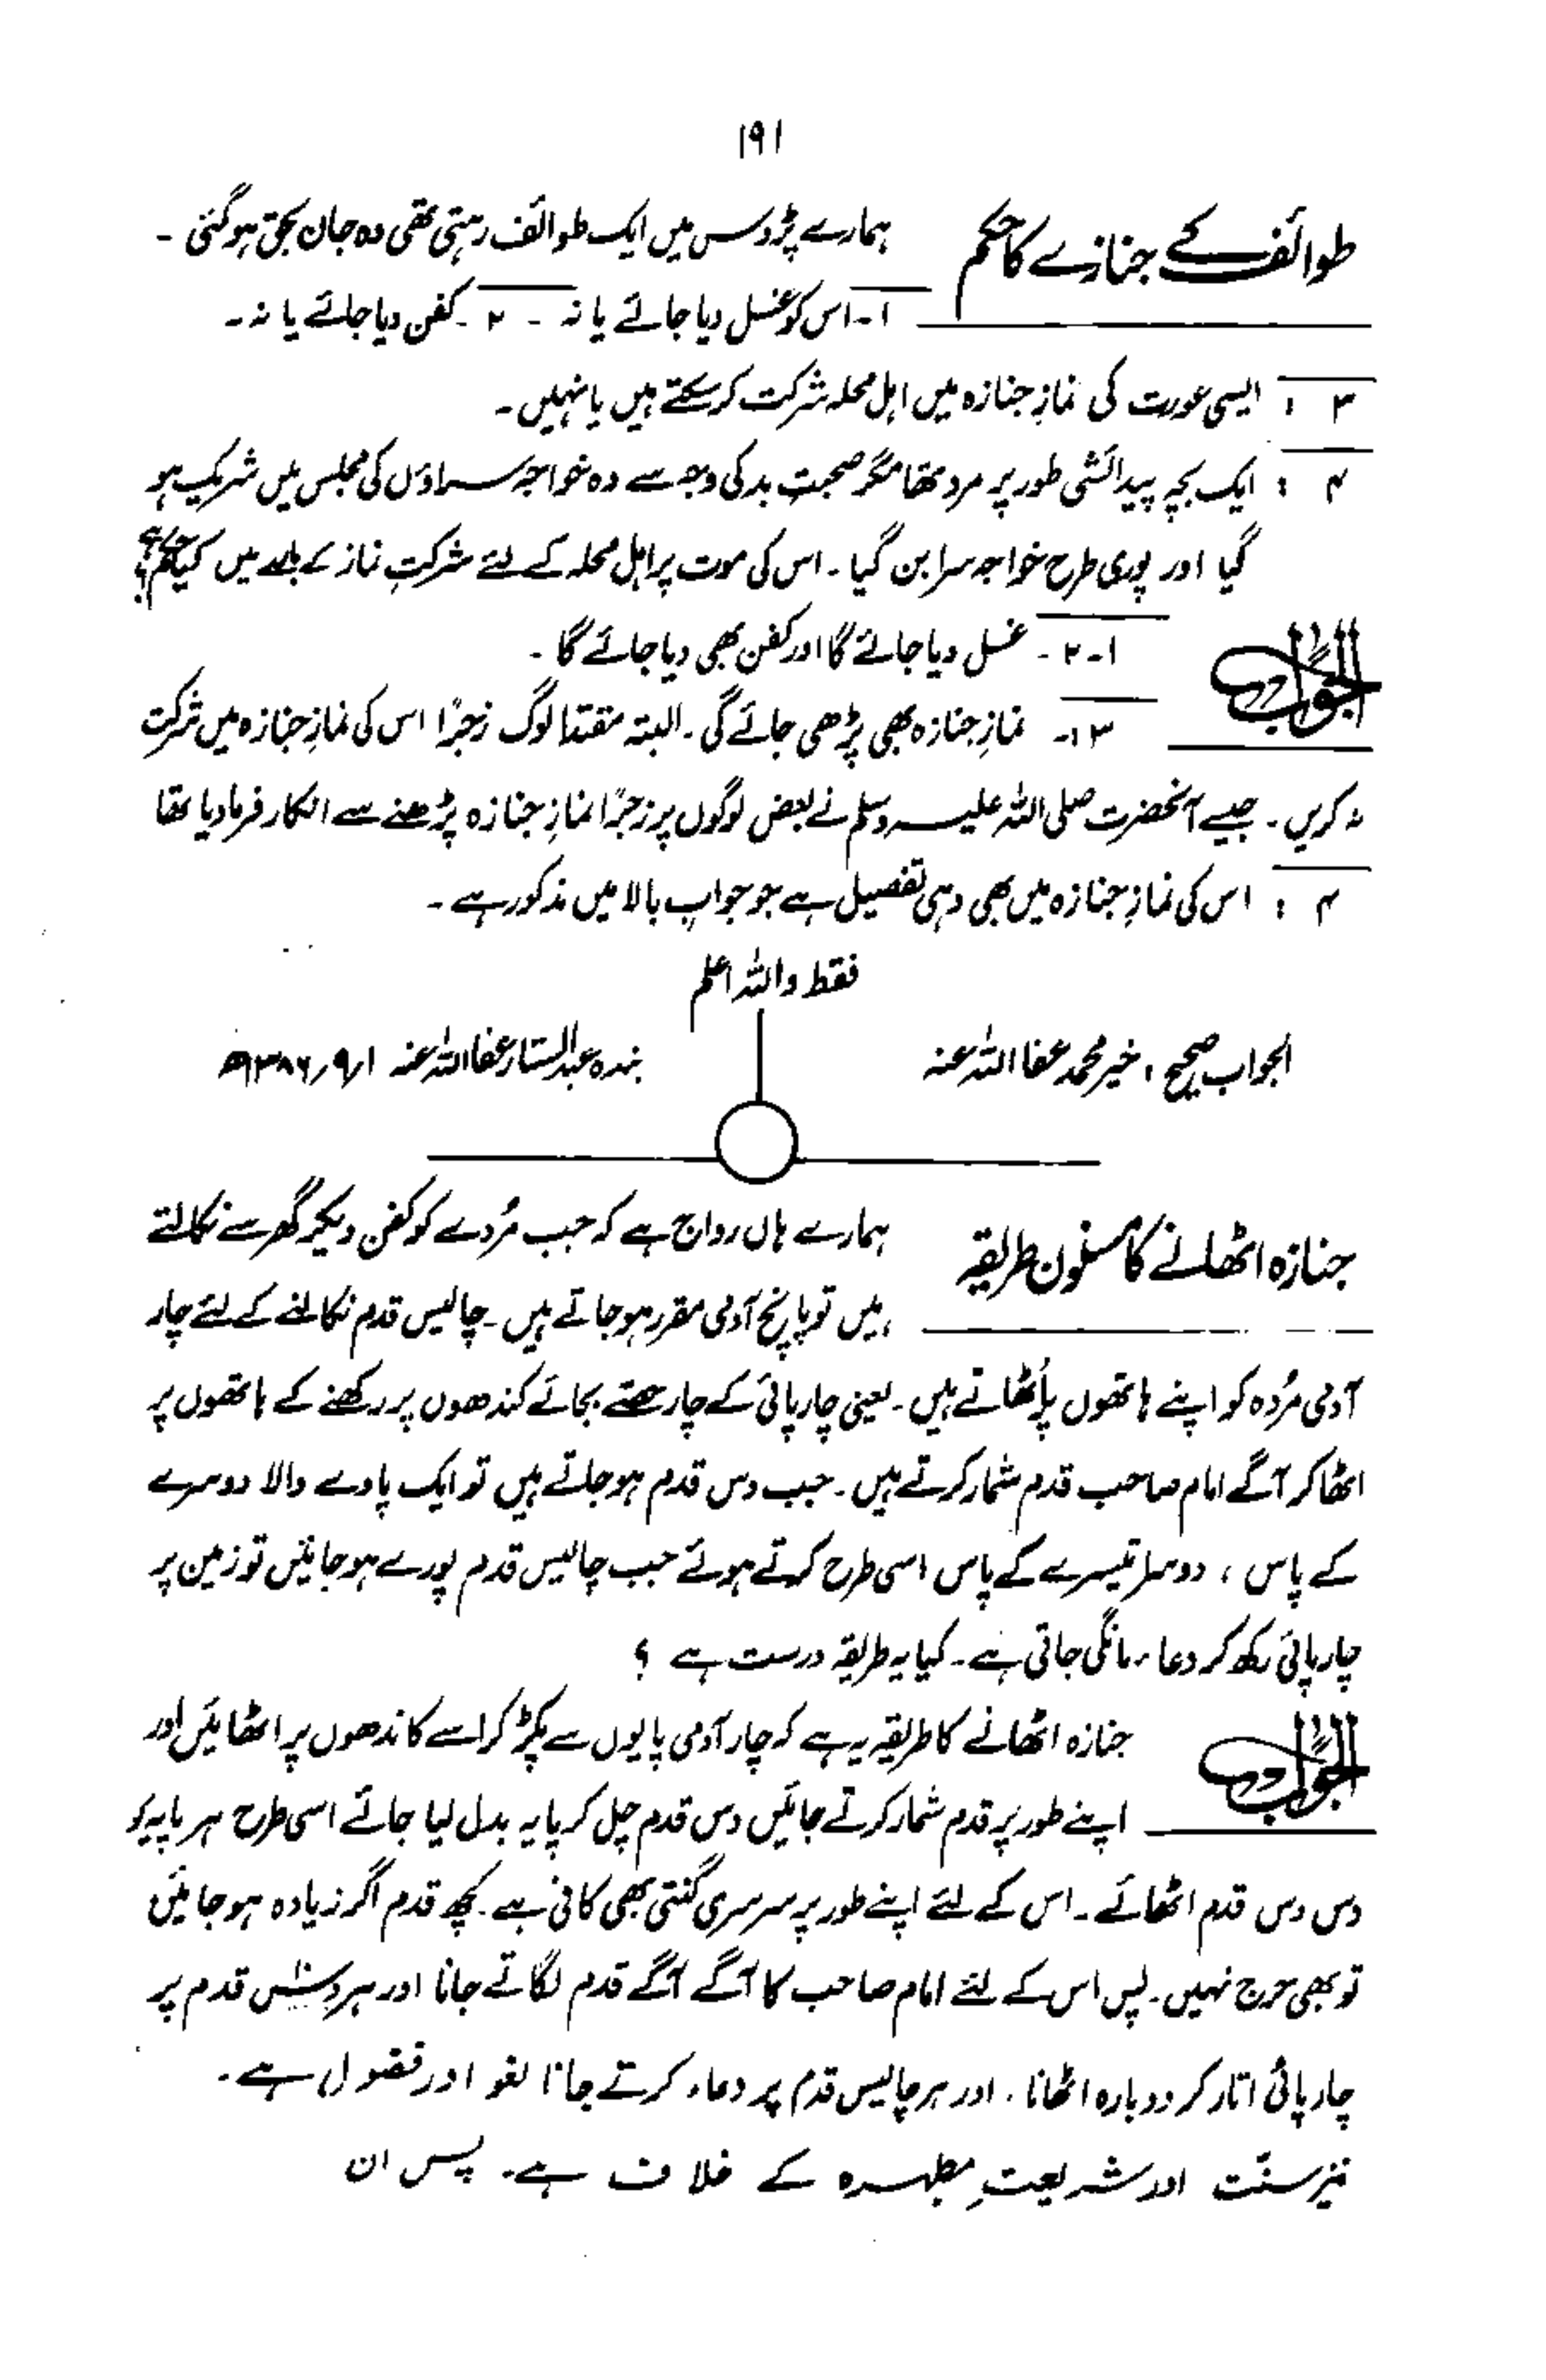 ۱۹۱
طوائف کے جنازے کا حکم
ہمارے پڑوس میں ایک طوائف رہتی تھی وہ جان بحق ہوگئی ۔
۱۔ اس کو غسل دیا جائے یا نہ ۔ ۲ ۔ کفن دیا جائے یا نہ ۔
۳ : ایسی عورت کی نمازِ جنازہ میں اہل محلہ شرکت کرسکتے ہیں یا نہیں ۔
۴ : ایک بچہ پیدائشی طور پر مرد تھا مگر صحبتِ بد کی وجہ سے وہ خواجہ سراؤں کی مجلس میں شریک ہو
گیا اور پوری طرح خواجہ سرا بن گیا ۔ اس کی موت پر اہل محلہ کے لئے شرکتِ نماز کے بارے میں کیا حکم ہے؟
الجواب
۱۔۲ ۔ غسل دیا جائے گا اور کفن بھی دیا جائے گا ۔
۳:۔ نمازِ جنازہ بھی پڑھی جائے گی ۔ البتہ مقتدا لوگ زجرًا اس کی نمازِ جنازہ میں شرکت
نہ کریں ۔ جیسے آنحضرت صلی اللہ علیہ وسلم نے بعض لوگوں پر زجرًا نمازِ جنازہ پڑھنے سے انکار فرما دیا تھا
۴ : اس کی نمازِ جنازہ میں بھی وہی تفصیل ہے جو جوابِ بالا میں مذکور ہے ۔
فقط واللہ اعلم
الجواب صحیح ، خیر محمد عفا اللہ عنہ
بندہ عبد الستار عفا اللہ عنہ ۱/۹/۱۳۸۶ھ
جنازہ اٹھانے کا مسنون طریقہ
ہمارے ہاں رواج ہے کہ جب مُردے کو کفن دیکر گھر سے نکالتے
ہیں تو پانچ آدمی مقرر ہوجاتے ہیں ۔ چالیس قدم نکالنے کے لئے چار
آدمی مُردہ کو اپنے ہاتھوں پر اُٹھاتے ہیں ۔ یعنی چارپائی کے چار حصّے بجائے کندھوں پر رکھنے کے ہاتھوں پر
اٹھا کر آگے امام صاحب قدم شمار کرتے ہیں ۔ جب دس قدم ہوجاتے ہیں تو ایک پاوے والا دوسرے
کے پاس ، دوسرا تیسرے کے پاس اسی طرح کرتے ہوئے جب چالیس قدم پورے ہوجائیں تو زمین پر
چارپائی رکھ کر دعاء مانگی جاتی ہے ۔ کیا یہ طریقہ درست ہے ؟
الجواب
جنازہ اٹھانے کا طریقہ یہ ہے کہ چار آدمی پایوں سے پکڑ کر اسے کاندھوں پر اٹھائیں اور
اپنے طور پر قدم شمار کرتے جائیں دس قدم چل کر پایہ بدل لیا جائے اسی طرح ہر پایہ کو
دس دس قدم اٹھائے ۔ اس کے لئے اپنے طور پر سرسری گنتی بھی کافی ہے ۔ کچھ قدم اگر زیادہ ہوجائیں
تو بھی حرج نہیں ۔ پس اس کے لئے امام صاحب کا آگے آگے قدم لگاتے جانا اور ہر دس قدم پر
چارپائی اتار کر دوبارہ اٹھانا ، اور ہر چالیس قدم پر دعاء کرتے جانا لغو اور فضول ہے ۔
نیز سنّت اور شریعتِ مطہرہ کے خلاف ہے ۔ پس ان